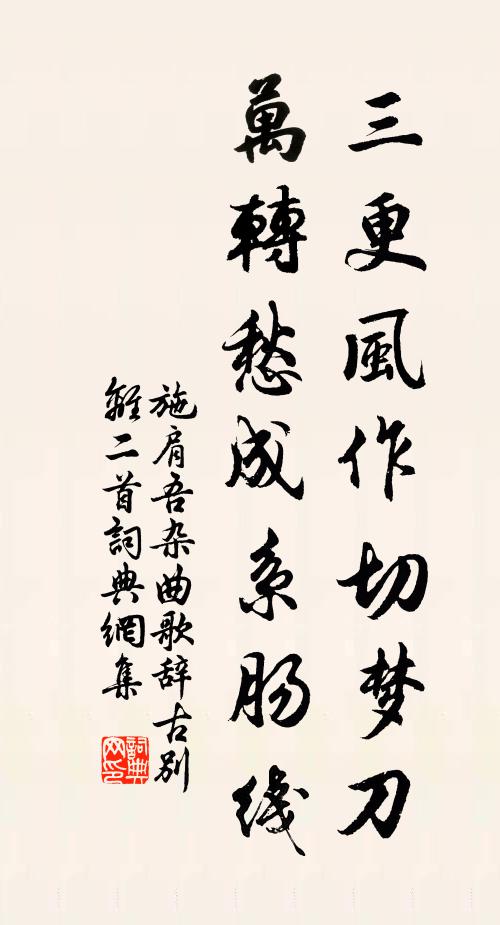 三更風作切梦刀
萬轉愁成系肠线
施肩吾杂曲歌辞古别
離二首詞典網集
詞典网印